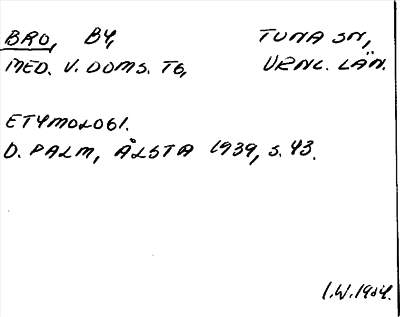 BRO, BY, TUNA SN,
MED. V. DOMS. TG, VRML. LÄN.
ETYMOLOGI.
D. PALM, ÅLSTA 1939, S. 43.
I.W.1984.